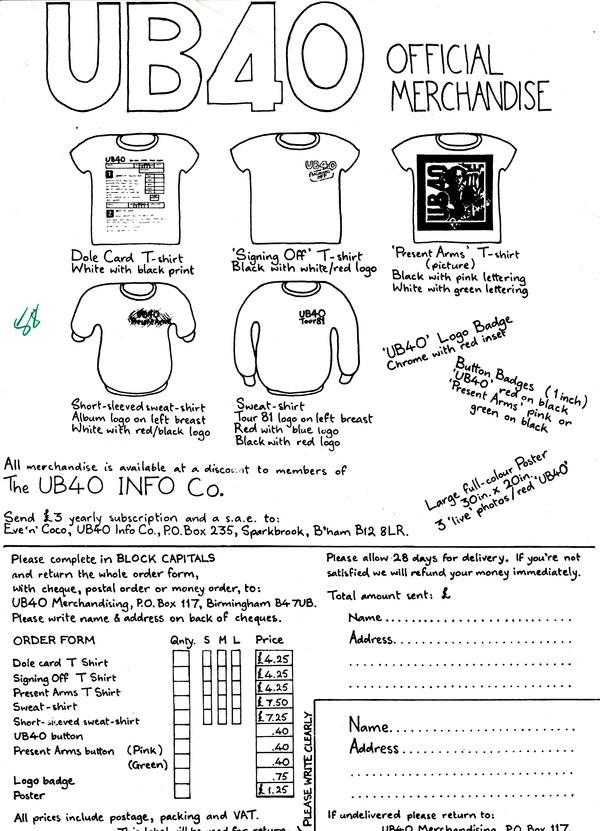 UB40
OFFICIAL
MERCHANDISE
Dole Card T-shirt
White with black print
'Signing Off' T-shirt
Black with white/red logo
'Present Arms' T-shirt
(picture)
Black with pink lettering
White with green lettering
UB40
UB40
Signing Off
UB40
UB40
Present Arms
UB40
Tour 81
Short-sleeved sweat-shirt
Album logo on left breast
White with red/black logo
Sweat-shirt
Tour 81 logo on left breast
Red with blue logo
Black with red logo
'UB40' Logo Badge
Chrome with red inset
Button Badges (1 inch)
'UB40' red on black
'Present Arms' pink or
green on black
Large full-colour Poster
30in. x 20in.
3 'live' photos/red 'UB40'
All merchandise is available at a discount to members of
The UB40 INFO Co.
Send £3 yearly subscription and a s.a.e. to:
Eve'n'Coco, UB40 Info Co., P.O. Box 235, Sparkbrook, B'ham B12 8LR.
Please complete in BLOCK CAPITALS
and return the whole order form,
with cheque, postal order or money order, to:
UB40 Merchandising, P.O. Box 117, Birmingham B4 7UB.
Please write name & address on back of cheques.
ORDER FORM Qnty. S M L Price
Dole card T Shirt £4.25
Signing Off T Shirt £4.25
Present Arms T Shirt £4.25
Sweat-shirt £7.50
Short-sleeved sweat-shirt £7.25
UB40 button .40
Present Arms button (Pink) .40
(Green) .40
Logo badge .75
Poster £1.25
All prices include postage, packing and VAT.
This label will be used for return
Please allow 28 days for delivery. If you're not
satisfied we will refund your money immediately.
Total amount sent: £
Name
Address
PLEASE WRITE CLEARLY
Name
Address
If undelivered please return to:
UB40 Merchandising, P.O. Box 117